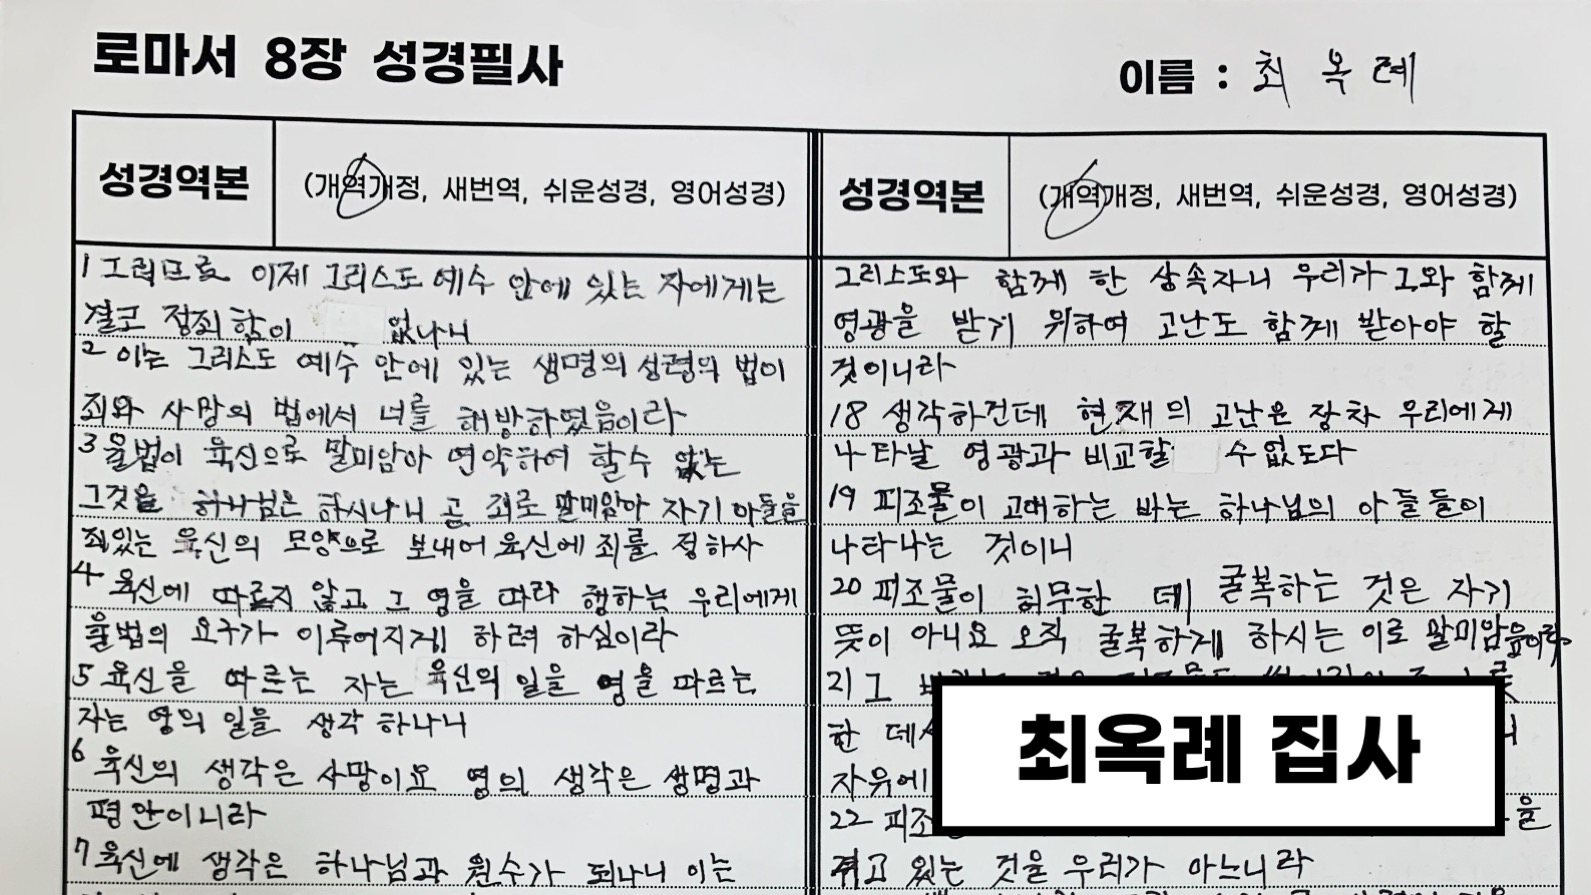 로마서 8장 성경필사
이름 : 최옥례
성경역본 (개역개정, 새번역, 쉬운성경, 영어성경)
1 그러므로 이제 그리스도 예수 안에 있는 자에게는
결코 정죄함이 없나니
2 이는 그리스도 예수 안에 있는 생명의 성령의 법이
죄와 사망의 법에서 너를 해방하였음이라
3 율법이 육신으로 말미암아 연약하여 할수 없는
그것을 하나님은 하시나니 곧 죄로 말미암아 자기 아들을
죄있는 육신의 모양으로 보내어 육신에 죄를 정하사
4 육신에 따르지 않고 그 영을 따라 행하는 우리에게
율법의 요구가 이루어지게 하려 하심이라
5 육신을 따르는 자는 육신의 일을 영을 따르는
자는 영의 일을 생각하나니
6 육신의 생각은 사망이요 영의 생각은 생명과
평안이니라
7 육신에 생각은 하나님과 원수가 되나니 이는
성경역본 (개역개정, 새번역, 쉬운성경, 영어성경)
그리스도와 함께 한 상속자니 우리가 그와 함께
영광을 받기 위하여 고난도 함께 받아야 할
것이니라
18 생각하건데 현재의 고난은 장차 우리에게
나타날 영광과 비교할 수없도다
19 피조물이 고대하는 바는 하나님의 아들들이
나타나는 것이니
20 피조물이 허무한 데 굴복하는 것은 자기
뜻이 아니요 오직 굴복하게 하시는 이로 말미암음이라
21 그
한
자유에
22 을
겪고 있는 것을 우리가 아느니라
최옥례 집사